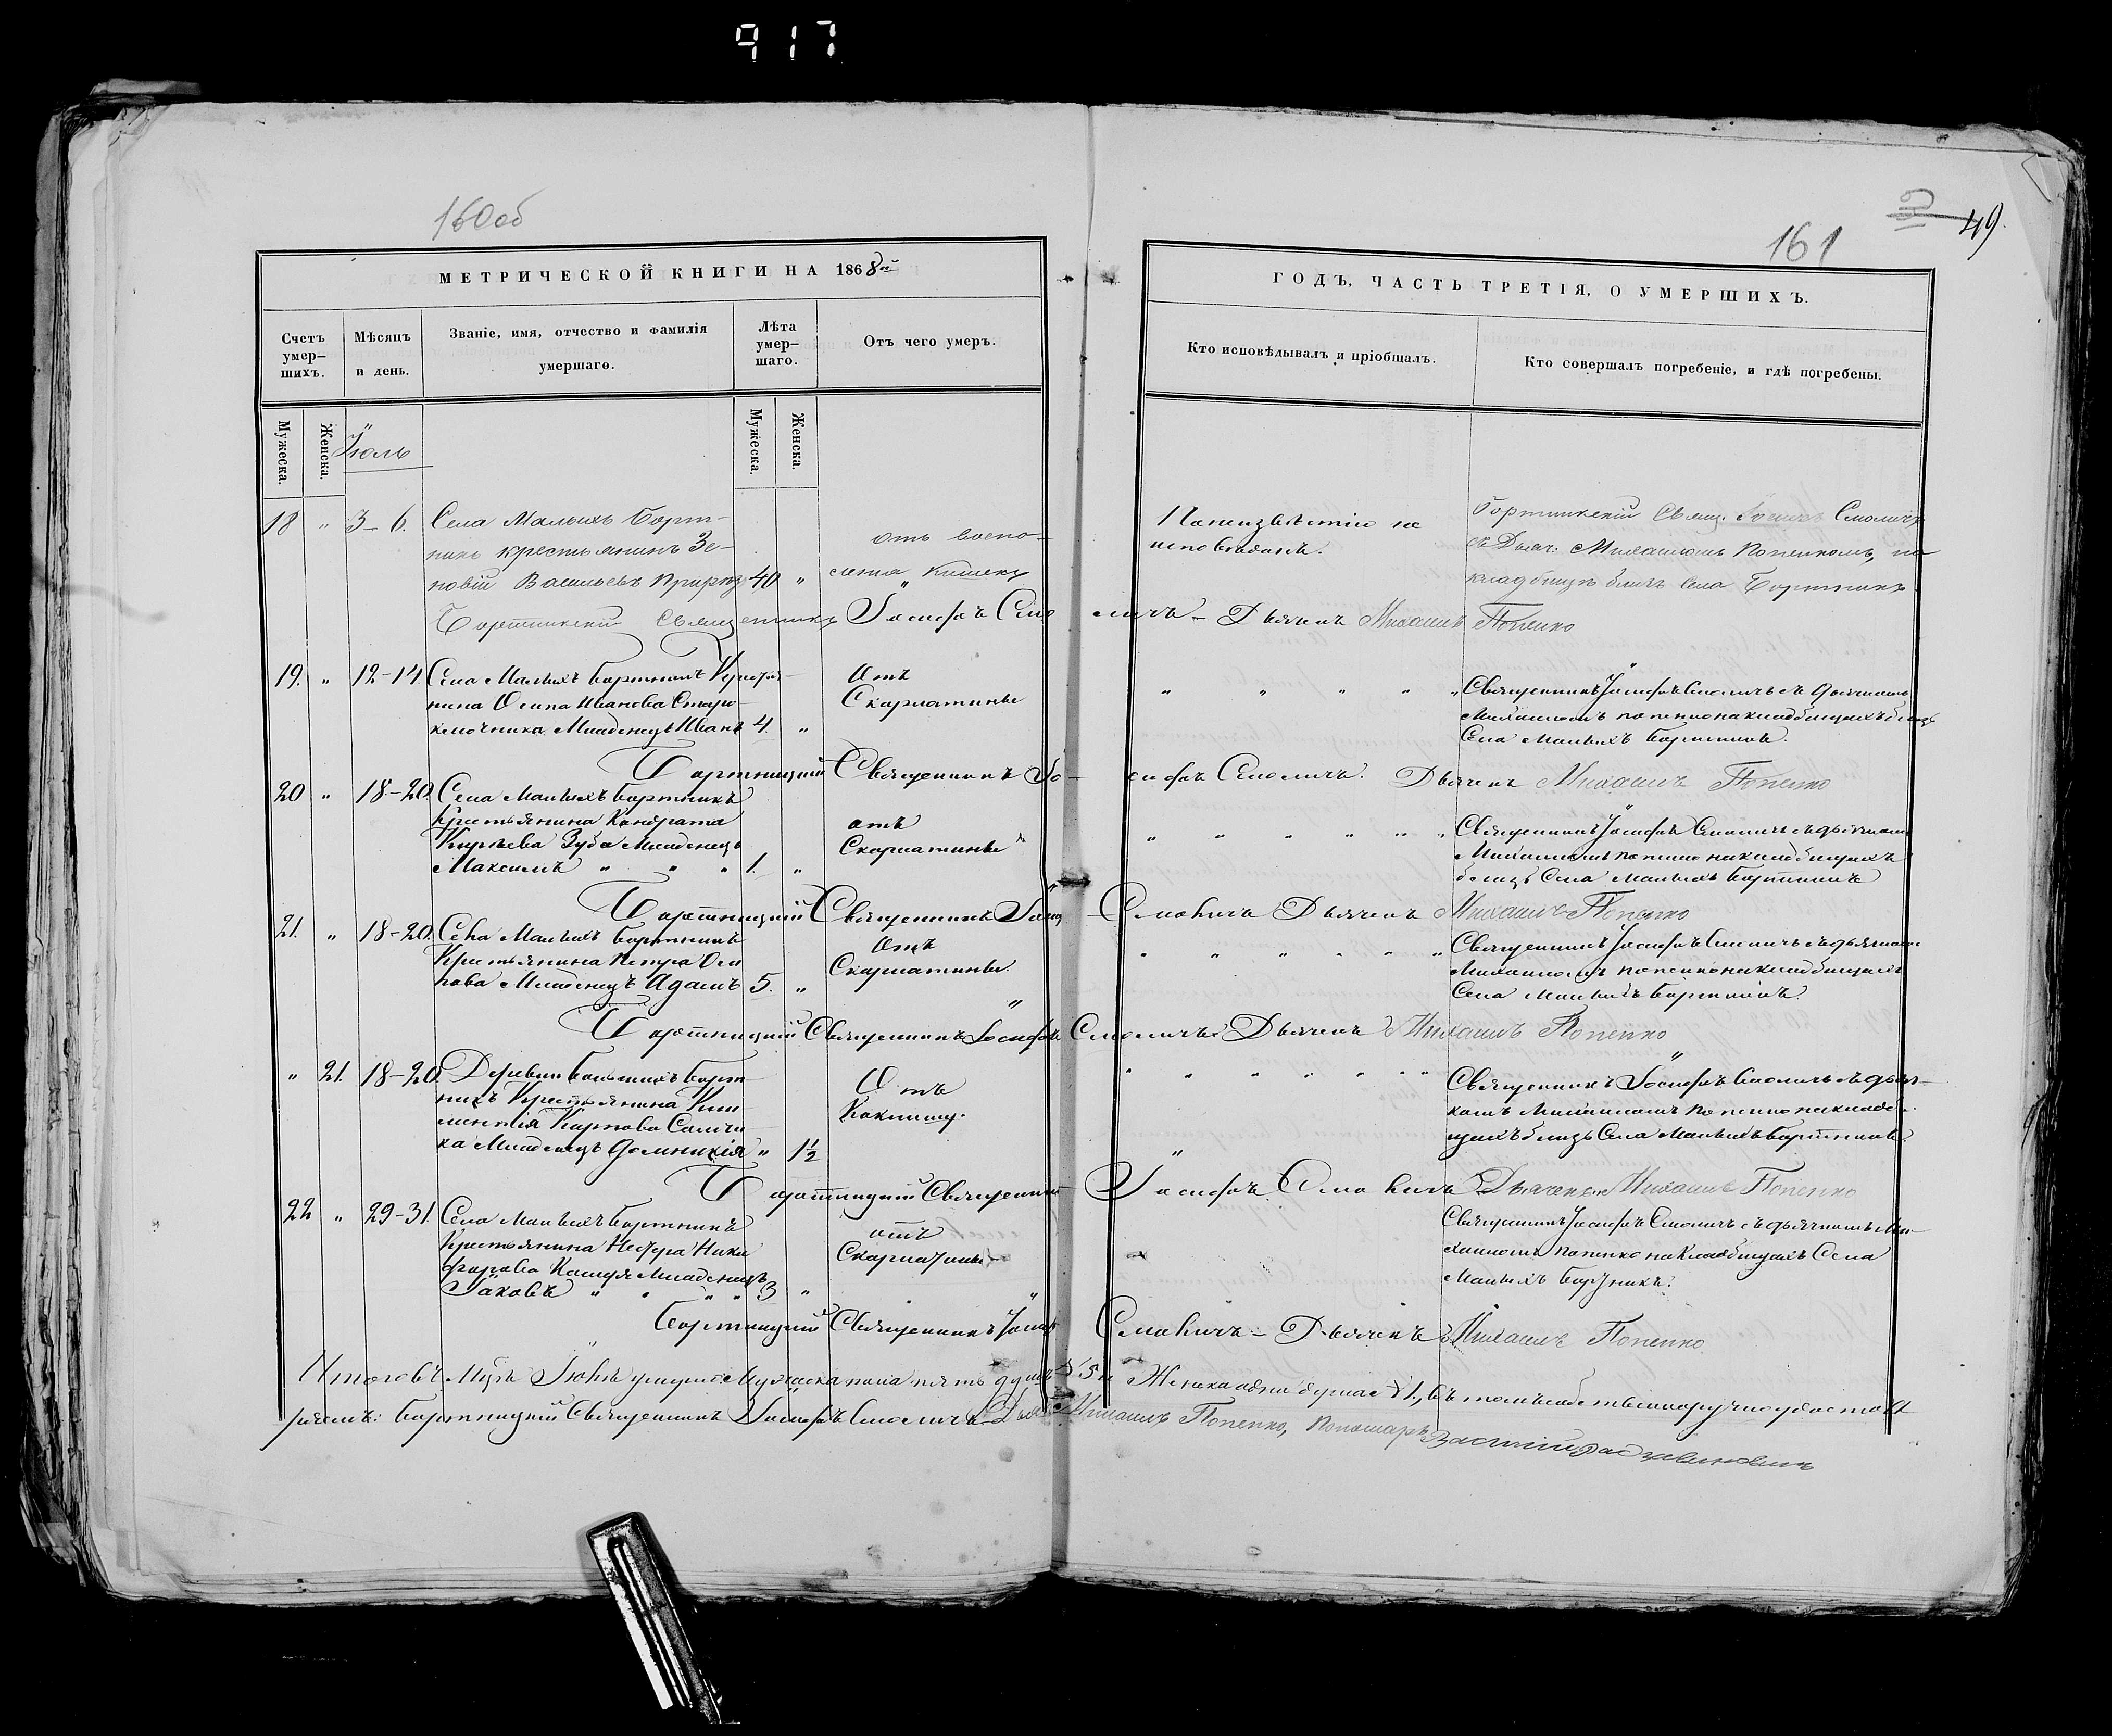 917
160об
161
49.
МЕТРИЧЕСКОЙ КНИГИ НА 1868й
ГОДЪ, ЧАСТЬ ТРЕТІЯ, О УМЕРШИХЪ.
Счетъ умер-шихъ.
Мѣсяцъ и день.
Званіе, имя, отчество и фамилія умершаго.
Лѣта умер-шаго.
Отъ чего умеръ.
Кто исповѣдывалъ и пріобщалъ.
Кто совершалъ погребеніе, и гдѣ погребены.
Мужеска.
Женска.
Іюль
Мужеска.
Женска.
18 " 3-6. Села Малыхъ Борт-
никъ крестьянинъ Зе-
новій Васильевъ 40 "
отъ воспа-
ленія кишекъ
По неизвѣстію не
исповѣданъ.
Бортникскій Свящ. Іосифъ Смоличъ
съ Дьяч: Михаиломъ Попенкомъ, на
кладбищѣ близъ Села Бортникъ
Бортникскій Священникъ Іосифъ Смоличъ - Дьячекъ Михаилъ Попенко
19. " 12-14. Села Малыхъ Бортникъ Крестья-
нина Осипа Иванова Старо-
ключника Младенецъ Иванъ 4. "
Отъ
Скарлатины
" " " " "
Священникъ Іосифъ Смоличъ съ дьячкомъ
Михаиломъ Попенко на кладбищахъ близъ
Села Малыхъ Бортникъ.
Бортницкій Священникъ Іосифъ Смоличъ. Дьячекъ Михаилъ Попенко
20 " 18-20. Села Малыхъ Бортникъ
Крестьянина Кондрата
Зуба Младенецъ
Максимъ " " " 1. "
отъ
Скарлатины
" " " " " "
Священникъ Іосифъ Смоличъ съ дьячкомъ
Михаиломъ Попенко на кладбищахъ
близъ Села Малыхъ Бортникъ
Бортницкій Священникъ Іосиф Смоличъ Дьячекъ Михаилъ Попенко
21. " 18-20. Села Малыхъ Бортникъ
Крестьянина Петра Оси
пова Младенецъ Адамъ 5. "
Отъ
Скарлатины.
" " " " " "
Священникъ Іосифъ Смоличъ съ дьячкомъ
Михаиломъ Попенко на кладбищахъ
Села Малыхъ Бортникъ.
Бортницкій Священникъ Іосифъ Смоличъ Дьячекъ Михаилъ Попенко
" 21. 18-20. Деревни Большихъ Борт
никъ Крестьянина Кли
ментія Карпова
Младенецъ Домникія " 1½
Отъ
Коклюшу.
" " " " " " "
Священникъ Іосифъ Смоличъ съ дьяч-
комъ Михаиломъ Попенко на кладби-
щахъ близъ Села Малыхъ Бортникъ.
Бортницкій Священникъ Іосифъ Смоличъ Дьячекъ Михаилъ Попенко
22 " 29-31. Села Малыхъ Бортникъ
Крестьянина Ники
форова Младенецъ
Іаковъ " " " " 3 "
отъ
Скарлатины
Священникъ Іосифъ Смоличъ съ дьячкомъ Ми-
хаиломъ Попенко на Кладбищахъ Села
Малыхъ Бортникъ.
Бортницкій Священникъ Іосиф Смоличъ - Дьячекъ Михаилъ Попенко
Итого въ Мцѣ умерло: Мужеска пола пять душъ 5 и Женска одна душа 1, въ томъ собственноручно удостовѣ
ряемъ: Бортницкій Священникъ Іосифъ Смоличъ Дьяч Михаилъ Попенко, Пономаръ